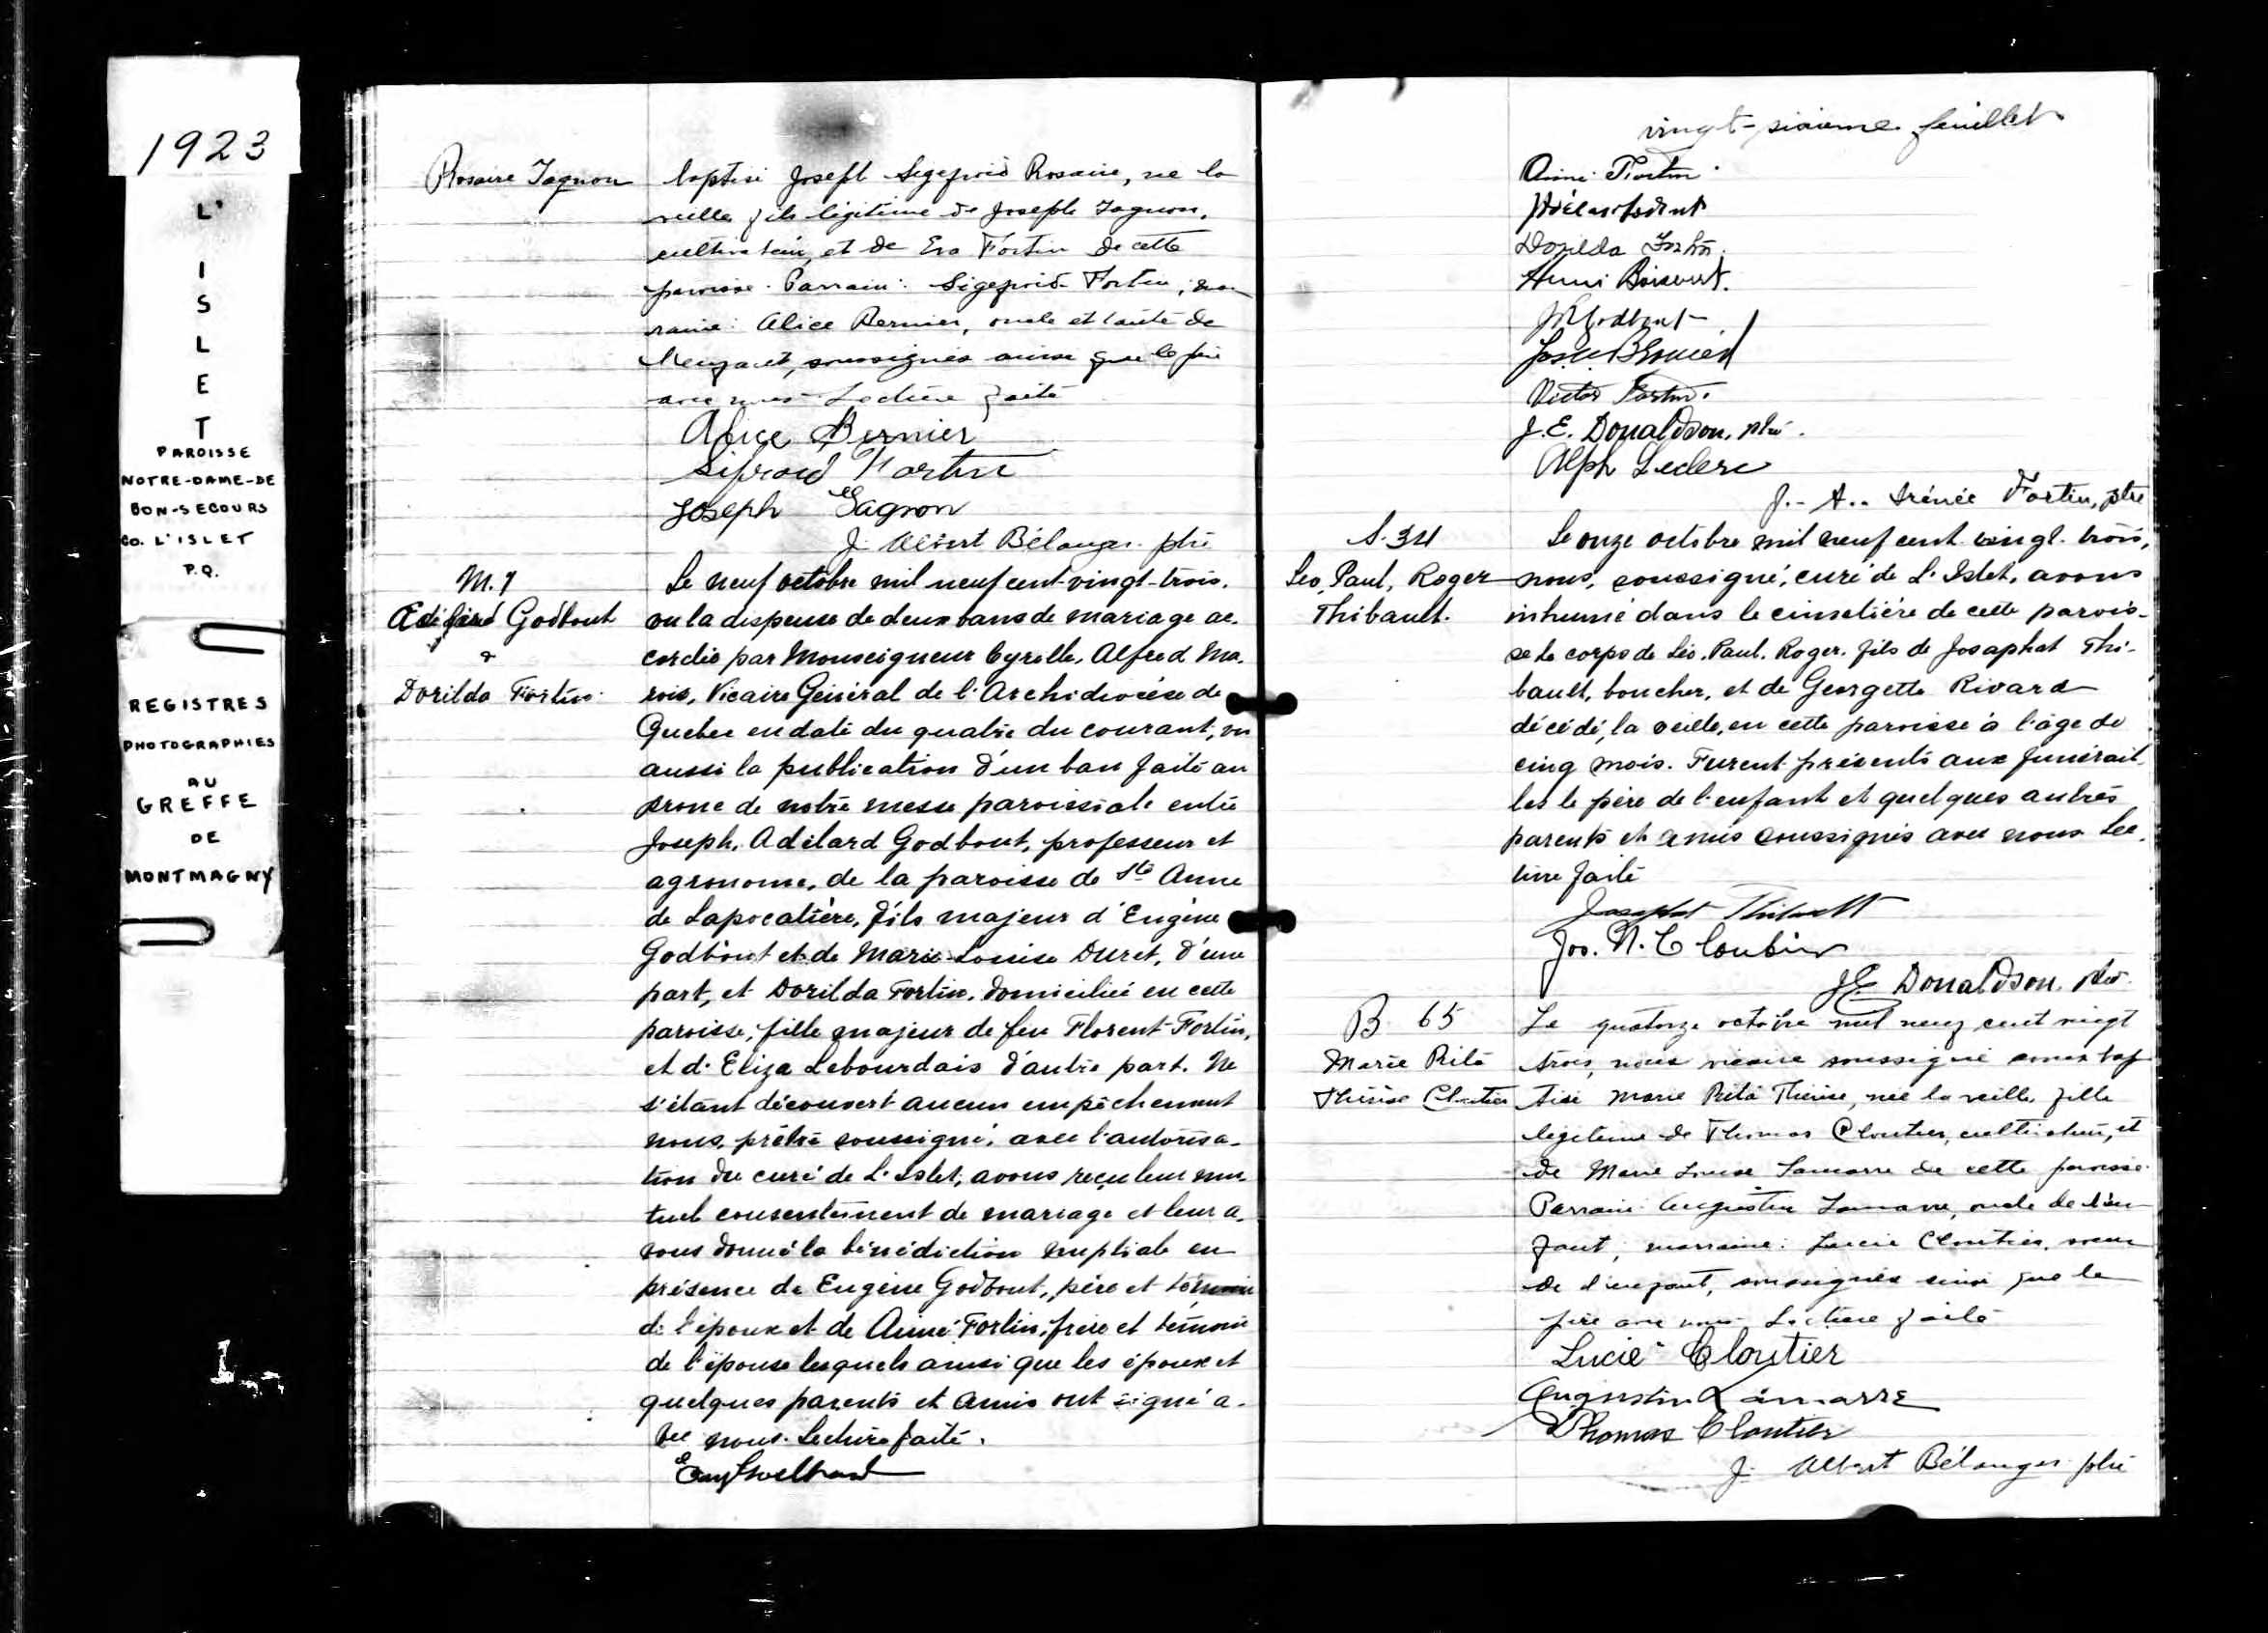 1923
L'
I
S
L
E
T
PAROISSE
NOTRE-DAME-DE
BON-SECOURS
CO. L'ISLET
P.Q.
REGISTRES
PHOTOGRAPHIES
AU
GREFFE
DE
MONTMAGNY
Rosaire Gagnon
baptisé Joseph Sigefroid Rosaire, né la
veille fils légitime de Joseph Gagnon,
cultivateur, et de Eva Fortin de cette
paroisse. Parrain: Sigefroid Fortin; mar
raine: Alice Bernier, oncle et tante de
l'enfant, soussignés ainsi que le père
avec nous. Lecture faite
Alice Bernier
Sifroid Fortin
Joseph Gagnon
J. Albert Bélanger ptre
M. 7
Adélard Godbout
&
Dorilda Fortin.
Le neuf octobre mil neuf cent-vingt-trois,
vu la dispense de deux bans de mariage ac-
cordée par Monseigneur Cyrille, Alfred Ma-
rois, Vicaire Général de l'Archidiocèse de
Québec en date du quatre du courant, vu
aussi la publication d'un ban faite au
prone de notre messe paroissiale entre
Joseph, Adélard Godbout, professeur et
agronome, de la paroisse de Ste Anne
de Lapocatière, fils majeur d'Eugène
Godbout et de Marie-Louise Duret, d'une
part, et Dorilda Fortin, domiciliée en cette
paroisse, fille majeur de feu Florent Fortin,
et d'Eliza Lebourdais d'autre part. Ne
s'étant découvert aucun empêchement
nous, prêtre soussigné, avec l'autorisa-
tion du curé de L'Islet, avons reçu leur mu-
tuel consentement de mariage et leur a-
vons donné la bénédiction nuptiale en
présence de Eugène Godbout, père et témoin
de l'époux et de Aimé Fortin, frère et témoin
de l'épouse lesquels ainsi que les époux et
quelques parents et amis ont signé a-
vec nous. Lecture faite.
Eug Godbout
vingt-sixième feuillet
Aimé Fortin
Adélard Godbout
Dorilda Fortin.
Henri Boisvert.
Victor Fortin.
J. E. Donaldson, ptre.
Alph Leclerc
J.-A.. Irénée Fortin, ptre
S. 34
Leo, Paul, Roger
Thibault.
Le onze octobre mil neuf cent vingt-trois,
nous, soussigné, curé de L'Islet, avons
inhumé dans le cimetière de cette parois-
se le corps de Léo. Paul. Roger. fils de Josaphat Thi-
bault, boucher, et de Georgette Rivard
décédé, la veille, en cette paroisse à l'âge de
cinq mois. Furent présents aux funérail-
les le père de l'enfant et quelques autres
parents et amis soussignés avec nous Lec-
ture faite
Josaphat Thibault
Jos. N. Cloutier
J.E. Donaldson. ptre.
B. 65
Marie Rita
Thérèse Cloutier
Le quatorze octobre mil neuf cent vingt
trois, nous vicaire soussigné avons bap
tisé Marie Rita Thérèse, née la veille, fille
légitime de Thomas Cloutier, cultivateur, et
de Marie Louise Lamarre de cette paroisse.
Parrain: Augustin Lamarre, oncle de l'en
fant; marraine: Lucie Cloutier, soeur
de l'enfant, soussignés ainsi que le
père avec nous. Lecture faite
Lucie Cloutier
Augustin Lamarre
Thomas Cloutier
J. Albert Bélanger ptre